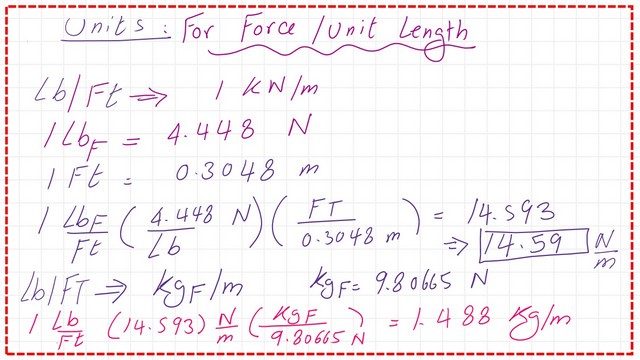 Units: For Force/Unit Length
Lb/Ft ⇒ 1 KN/m
1 Lb_F = 4.448 N
1 Ft = 0.3048 m
1 Lb_F/Ft (4.448 N/Lb) (FT/0.3048 m) = 14.593
⇒ 14.59 N/m
Lb/FT ⇒ Kg_F/m Kg_F = 9.80665 N
1 Lb/Ft (14.593) N/m (Kg_F/9.80665 N) = 1.488 Kg/m